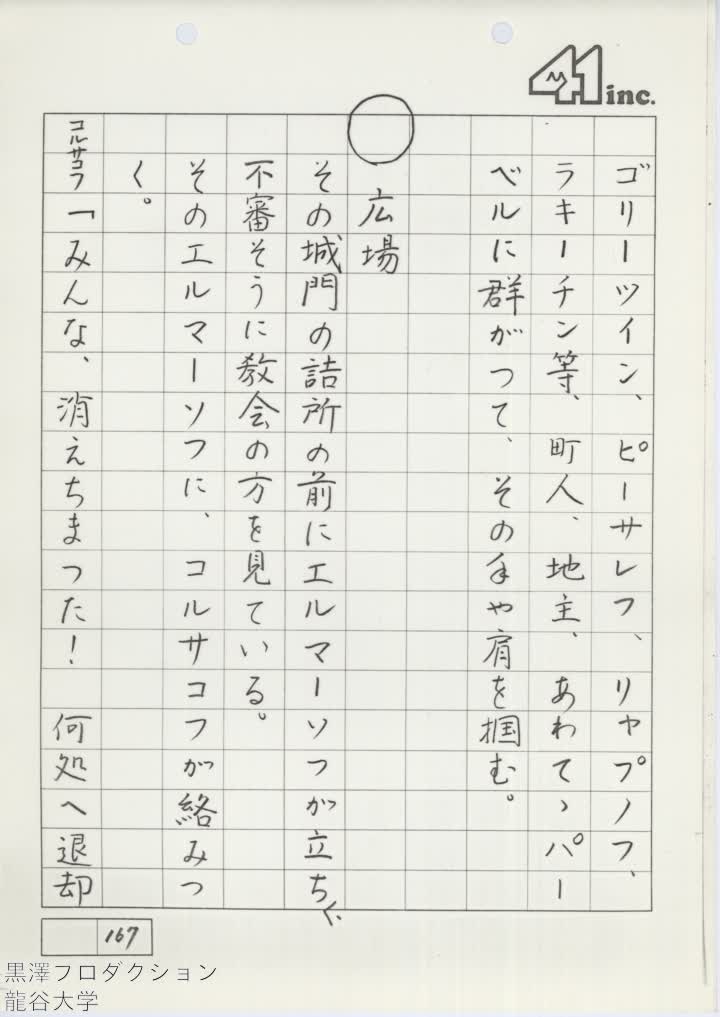 41 inc.
ゴリーツイン、ピーサレフ、リャプノフ、
ラキーチン等、町人、地主、あわてゝパー
ベルに群がつて、その手や肩を掴む。
○ 広場
その城門の詰所の前にエルマーソフが立ち、
不審そうに教会の方を見ている。
そのエルマーソフに、コルサコフが絡みつ
く。
コルサコフ「みんな、消えちまつた! 何処へ退却
167
黒澤プロダクション
龍谷大学